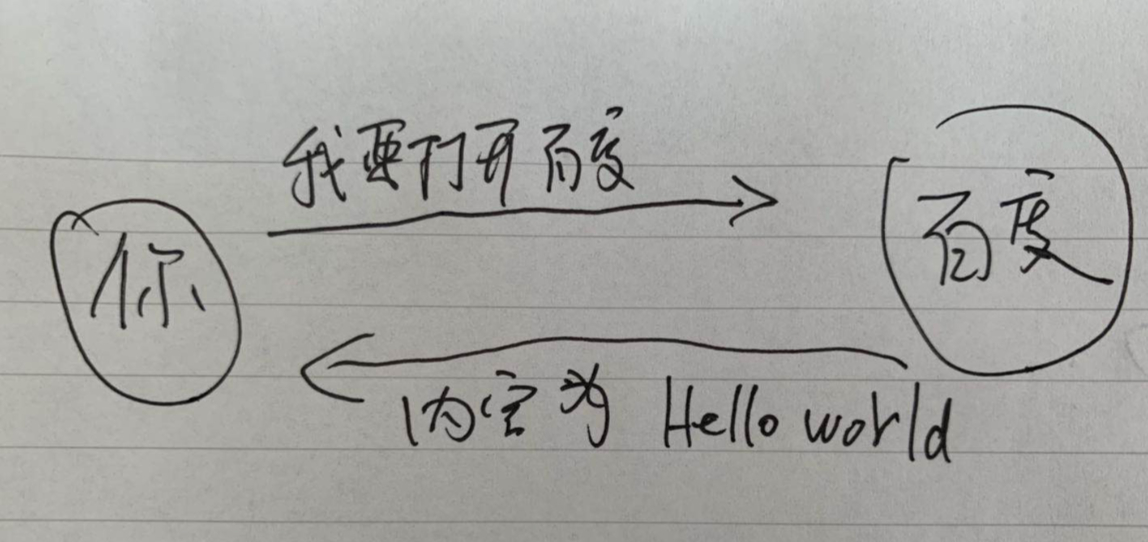 我要打开百度
你
百度
内容为 Hello world